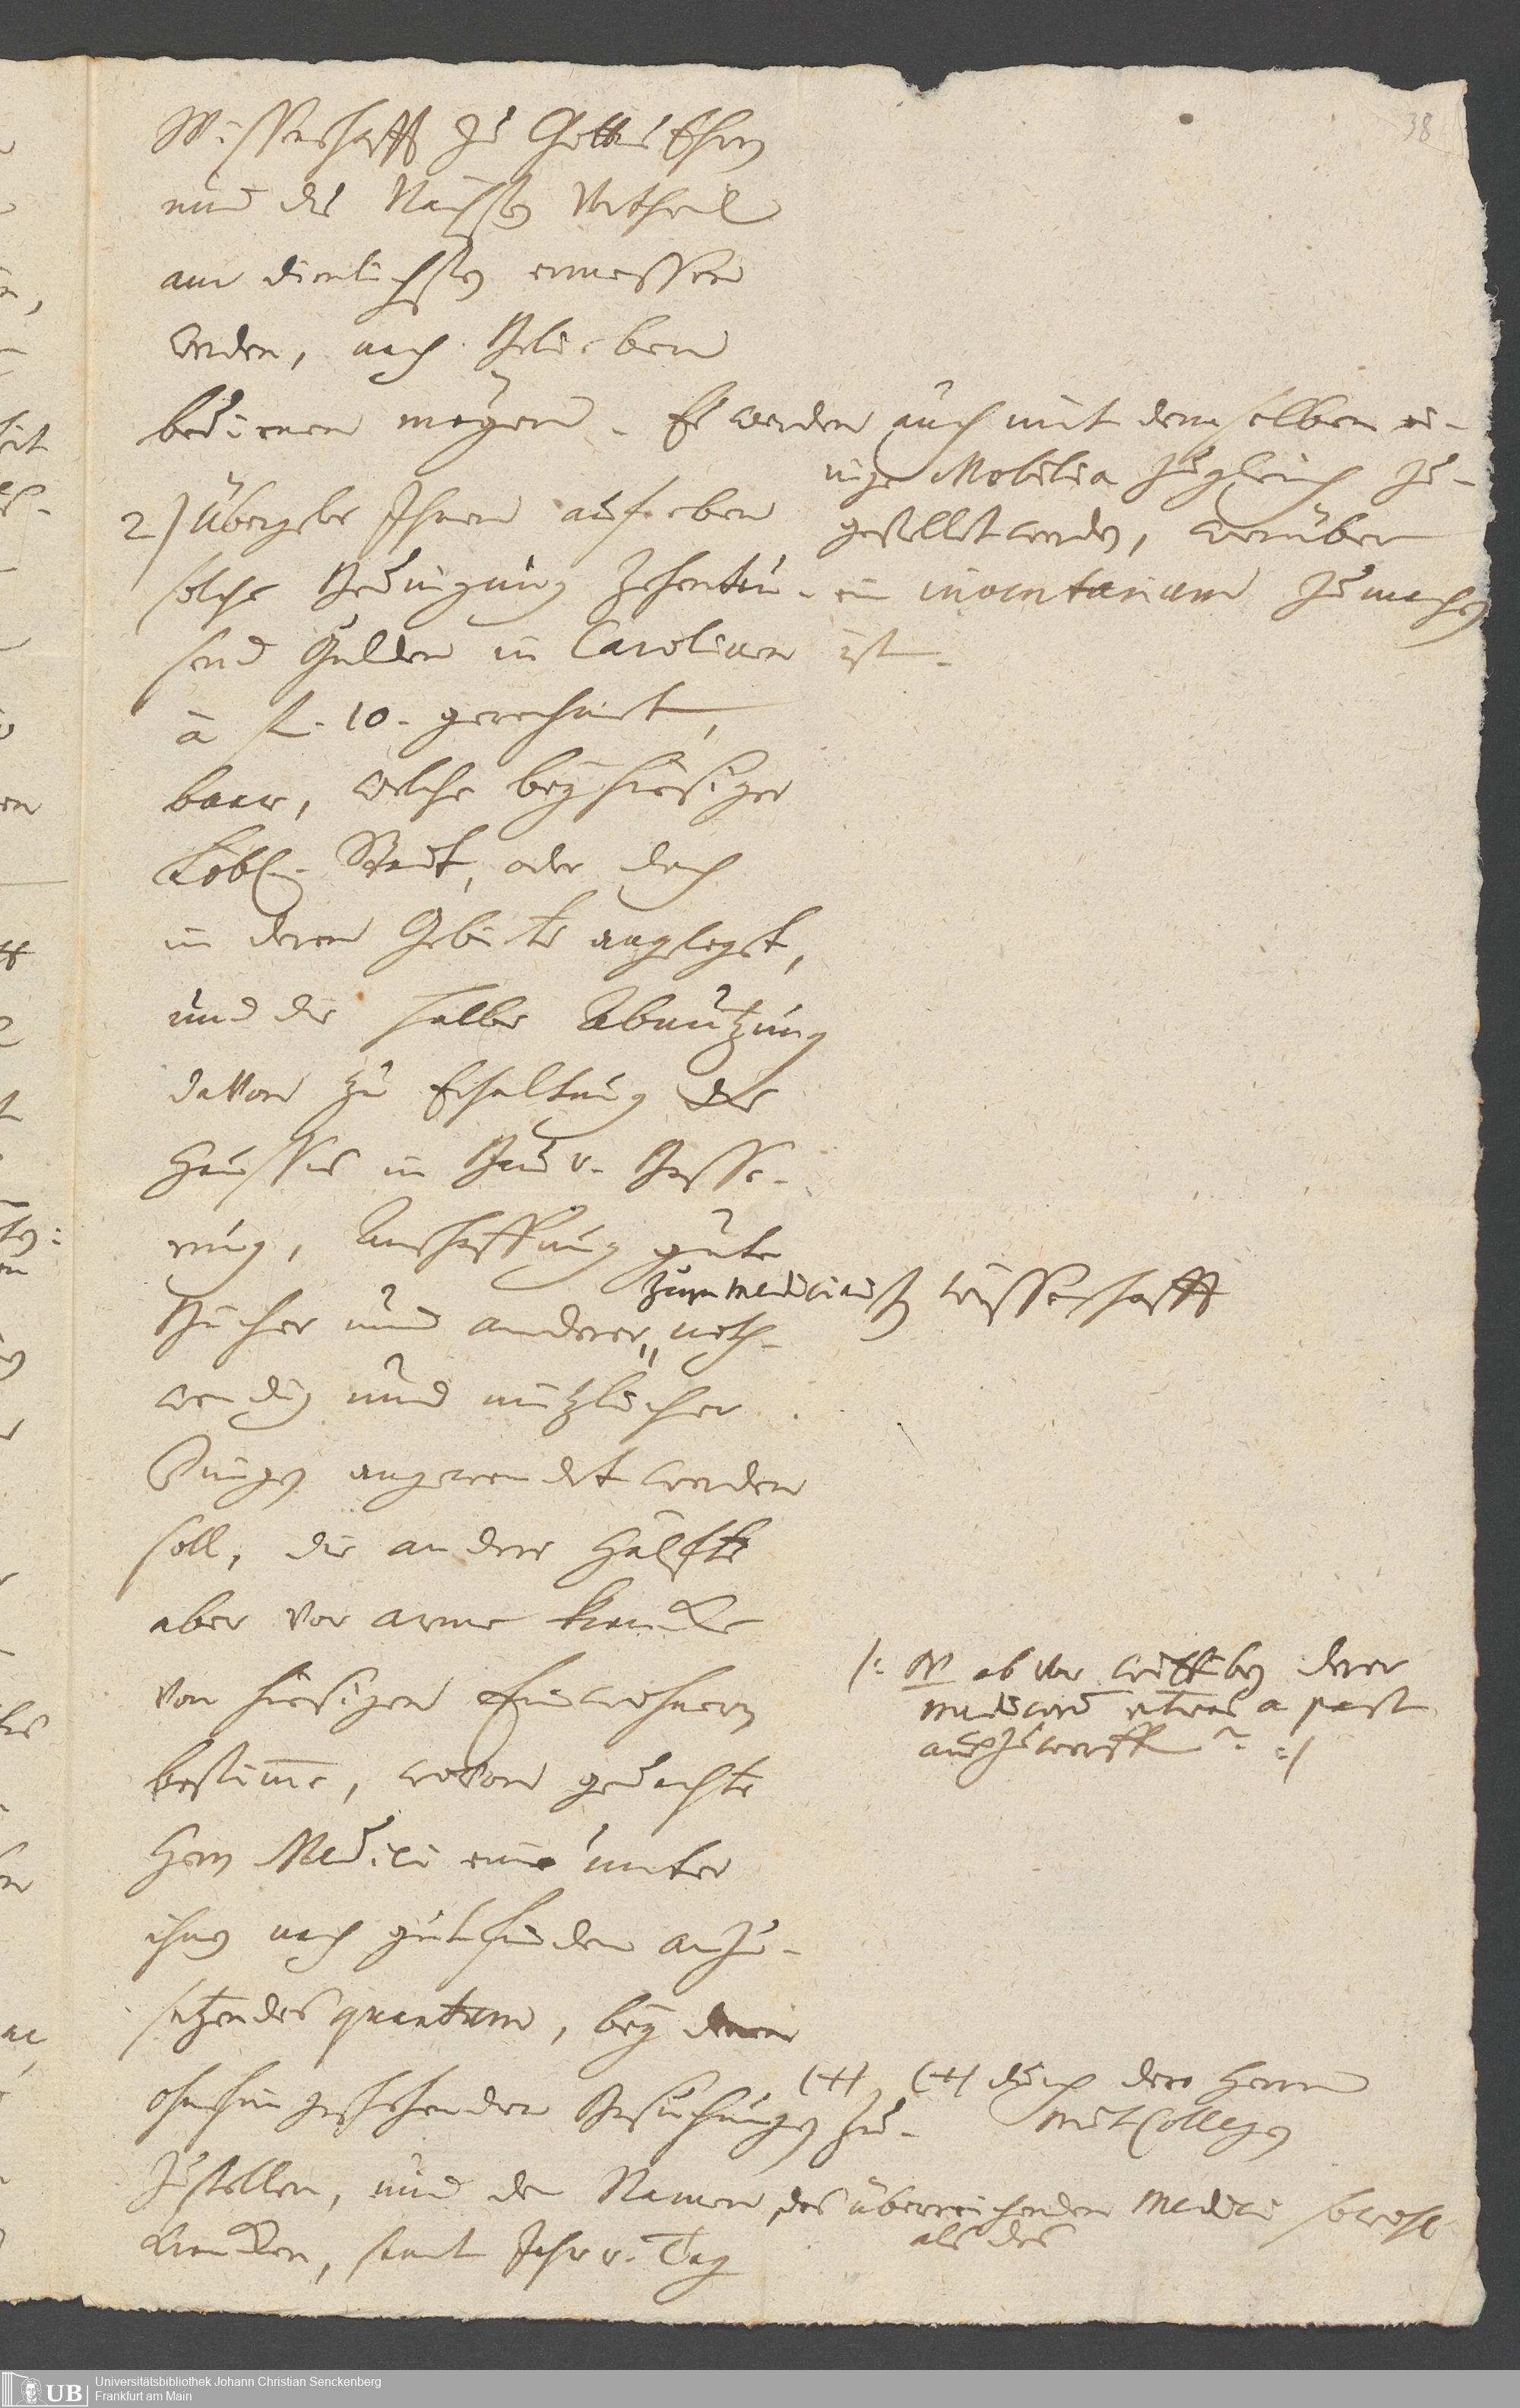 38
Wissenschafft zu Gottes Ehren
und des Nächsten Vortheil
am dienlichsten ermessen
werden, nach Belieben
bedienen mögen. Es werden auch mit demselben ei-
nige Mobilia zugleich zu-
gestellet werden, worüber
ein inventarium zu machen
ist.
2) Übergebe Ihnen auf eben
solche Bedingung zehentau-
send Gulden in Carolinen
à fl. 10. gerechnet,
baar, welche bey hiesiger
Löbl. Stadt, oder doch
in deren Gebiete angelegt,
und die halbe Abnutzung
davon zu Erhaltung des
Hausses in Bau u. Besse-
rung, Anschaffung guter
zur medicinisch Wissenschafft
Bücher und anderer noth-
wendig und nützlicher
Dingen angewendet werden
soll, die andere Hälfte
aber vor arme Krancke
von hiesigen Einwohnern
bestimme, wovon gedachte
Herrn Medici ein unter
ihnen nach gutfinden anzu-
setzendes quantum, bey denen
ohnehin geschehenden Besuchungen (+) zu-
zustellen, und den Namen des überreichenden Medici sowohl
als des
Krancken, samt Jahr u. Tag
/: NB ob vor derer
etwas a part
auszuwerffen? :/
(+) durch dero Herrn
Mit Collegen
Universitätsbibliothek Johann Christian Senckenberg
Frankfurt am Main
UB